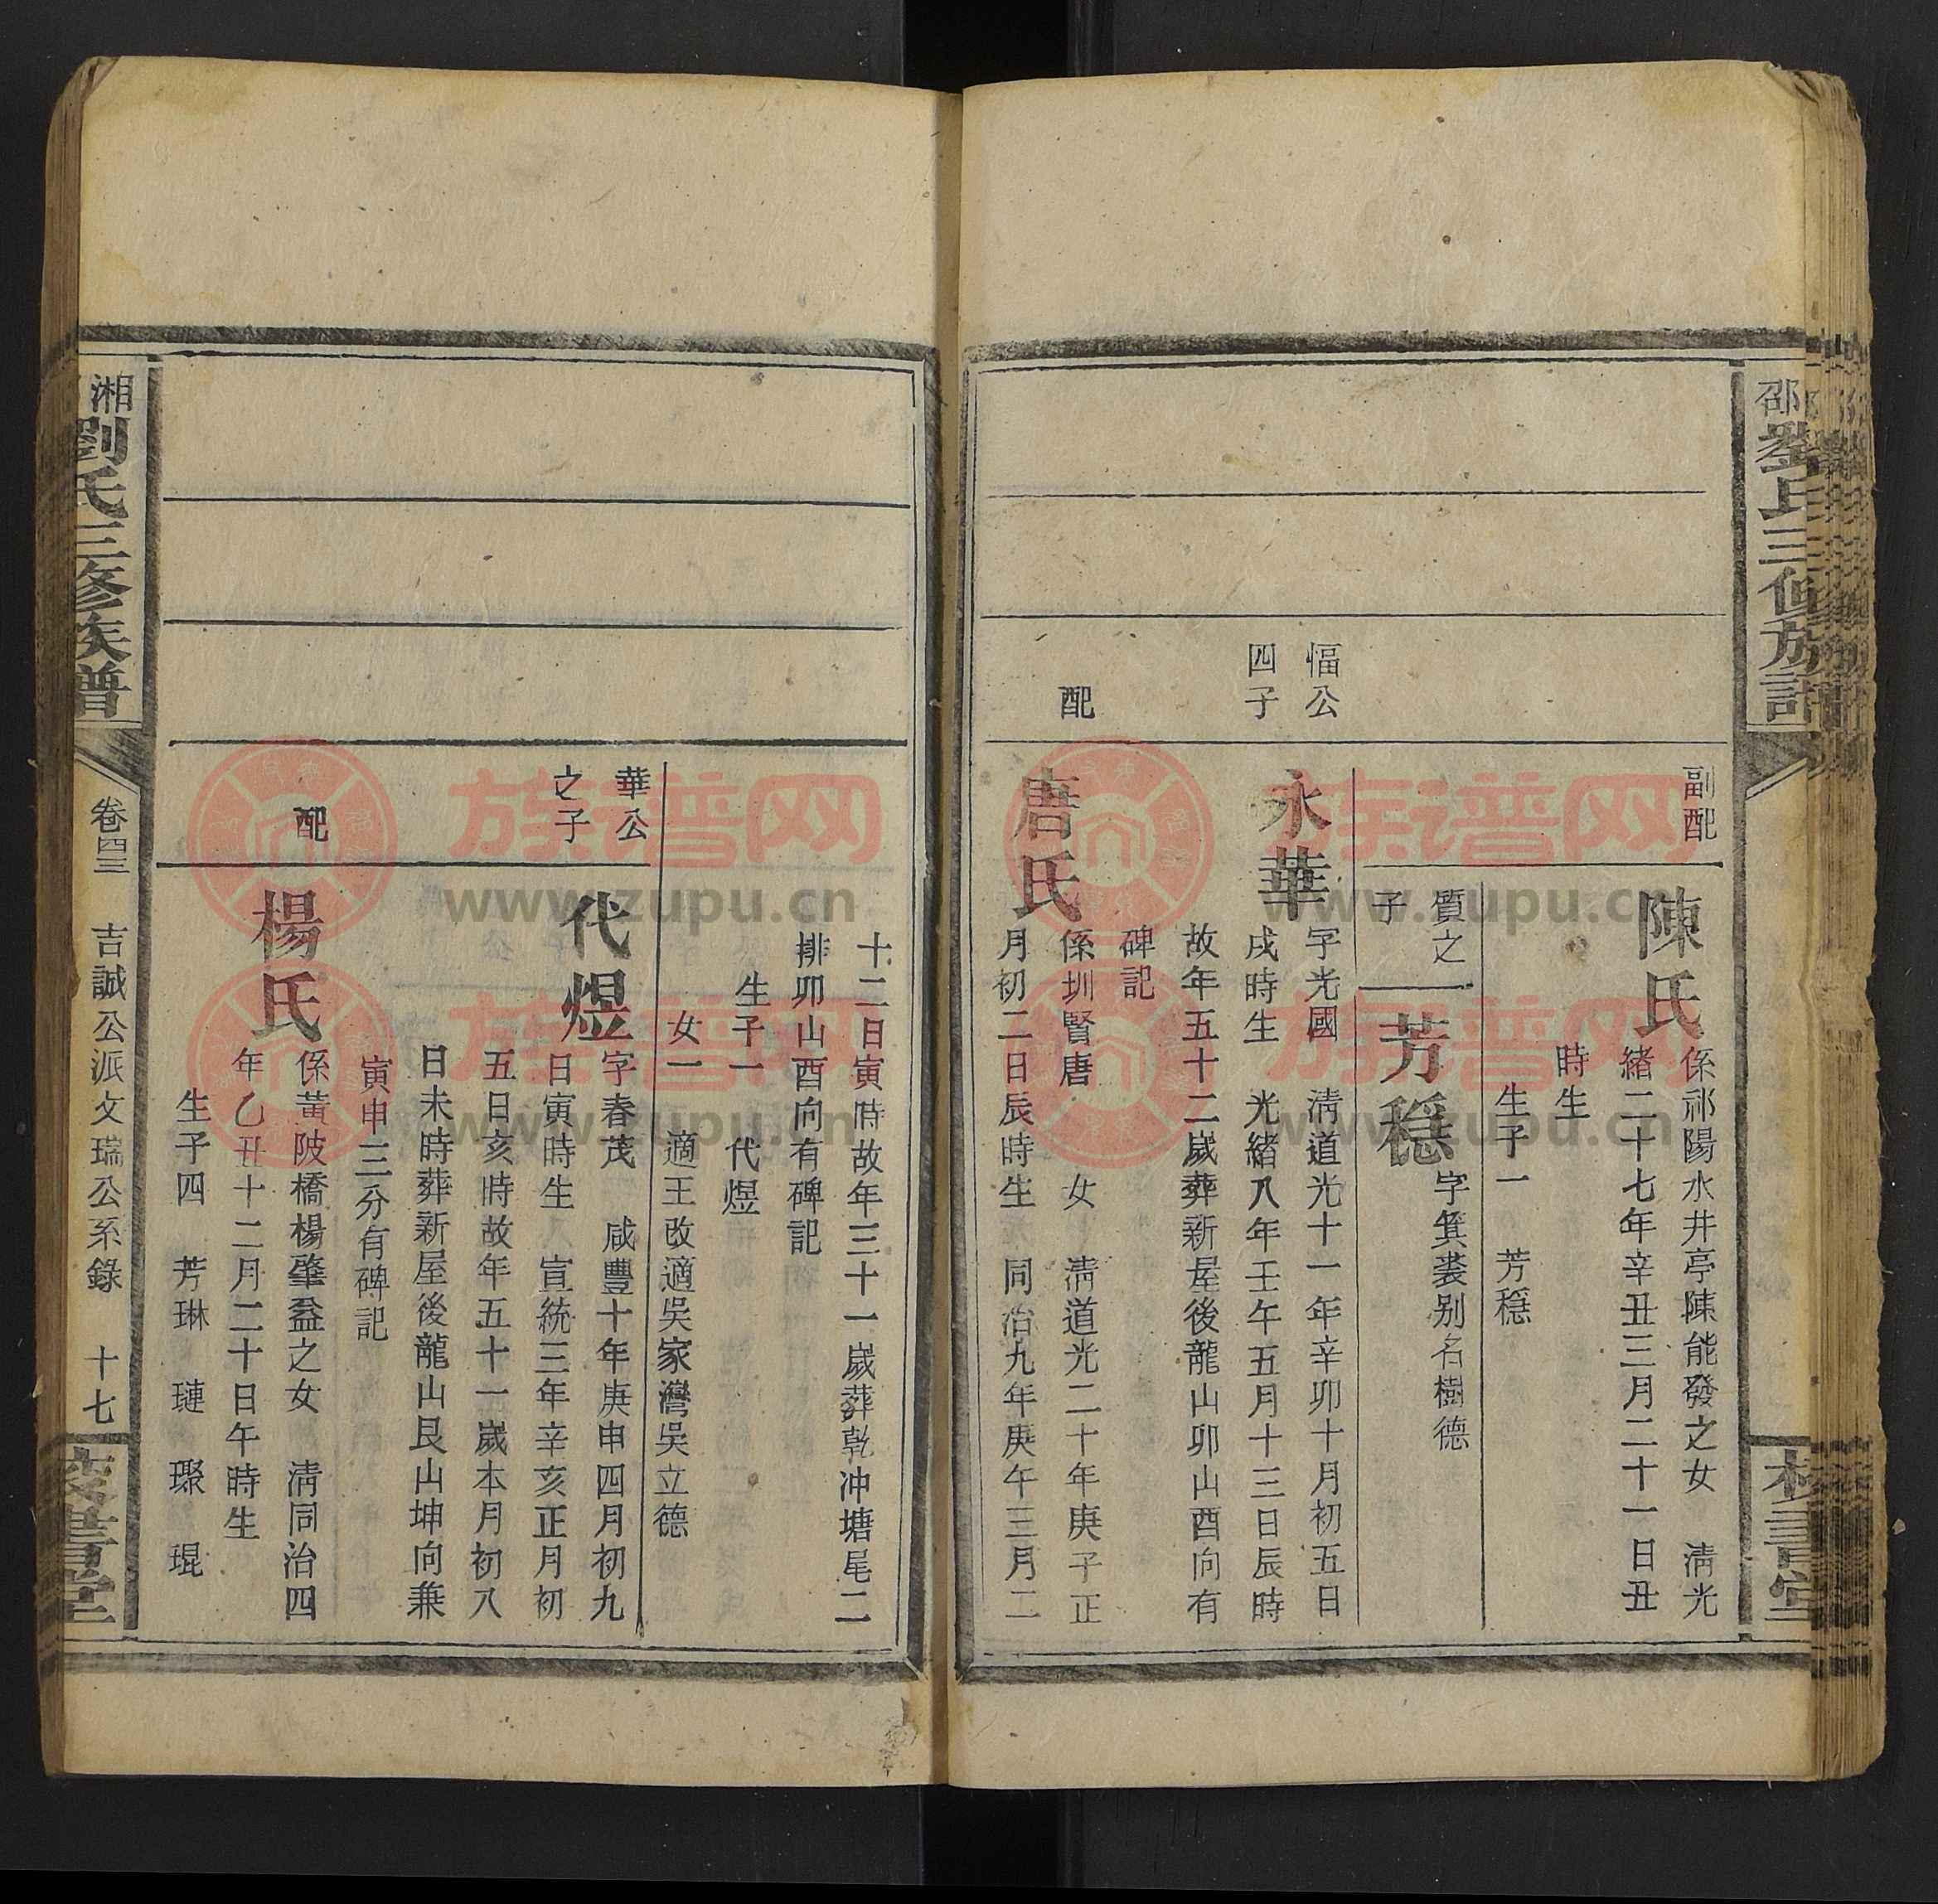 邵
劉氏三修族譜
校書堂
副配
陳氏
係祁陽水井亭陳能發之女　清光
緒二十七年辛丑三月二十一日丑
時生
生子一　芳穩
質之
子
芳穩
字箕裘别名樹德
愊公
四子
永華
字光國　清道光十一年辛卯十月初五日
戌時生　光緒八年壬午五月十三日辰時
故年五十二歲葬新屋後龍山卯山酉向有
碑記
配
唐氏
係圳賢唐　女　清道光二十年庚子正
月初二日辰時生　同治九年庚午三月二
十二日寅時故年三十一歲葬乾冲塘尾二
排卯山酉向有碑記
生子一　代煜
女一　適王改適吳家灣吳立德
華公
之子
代煜
字春茂　咸豐十年庚申四月初九
日寅時生　宣統三年辛亥正月初
五日亥時故年五十一歲本月初八
日未時葬新屋後龍山艮山坤向兼
寅申三分有碑記
配
楊氏
係黃陂橋楊肇益之女　清同治四
年乙丑十二月二十日午時生
生子四　芳琳　璉　璨　琨
湘
劉氏三修族譜
卷四三　吉誠公派文瑞公系錄　十七
校書堂
族谱网
www.zupu.cn
族谱网
www.zupu.cn
族谱网
www.zupu.cn
族谱网
www.zupu.cn